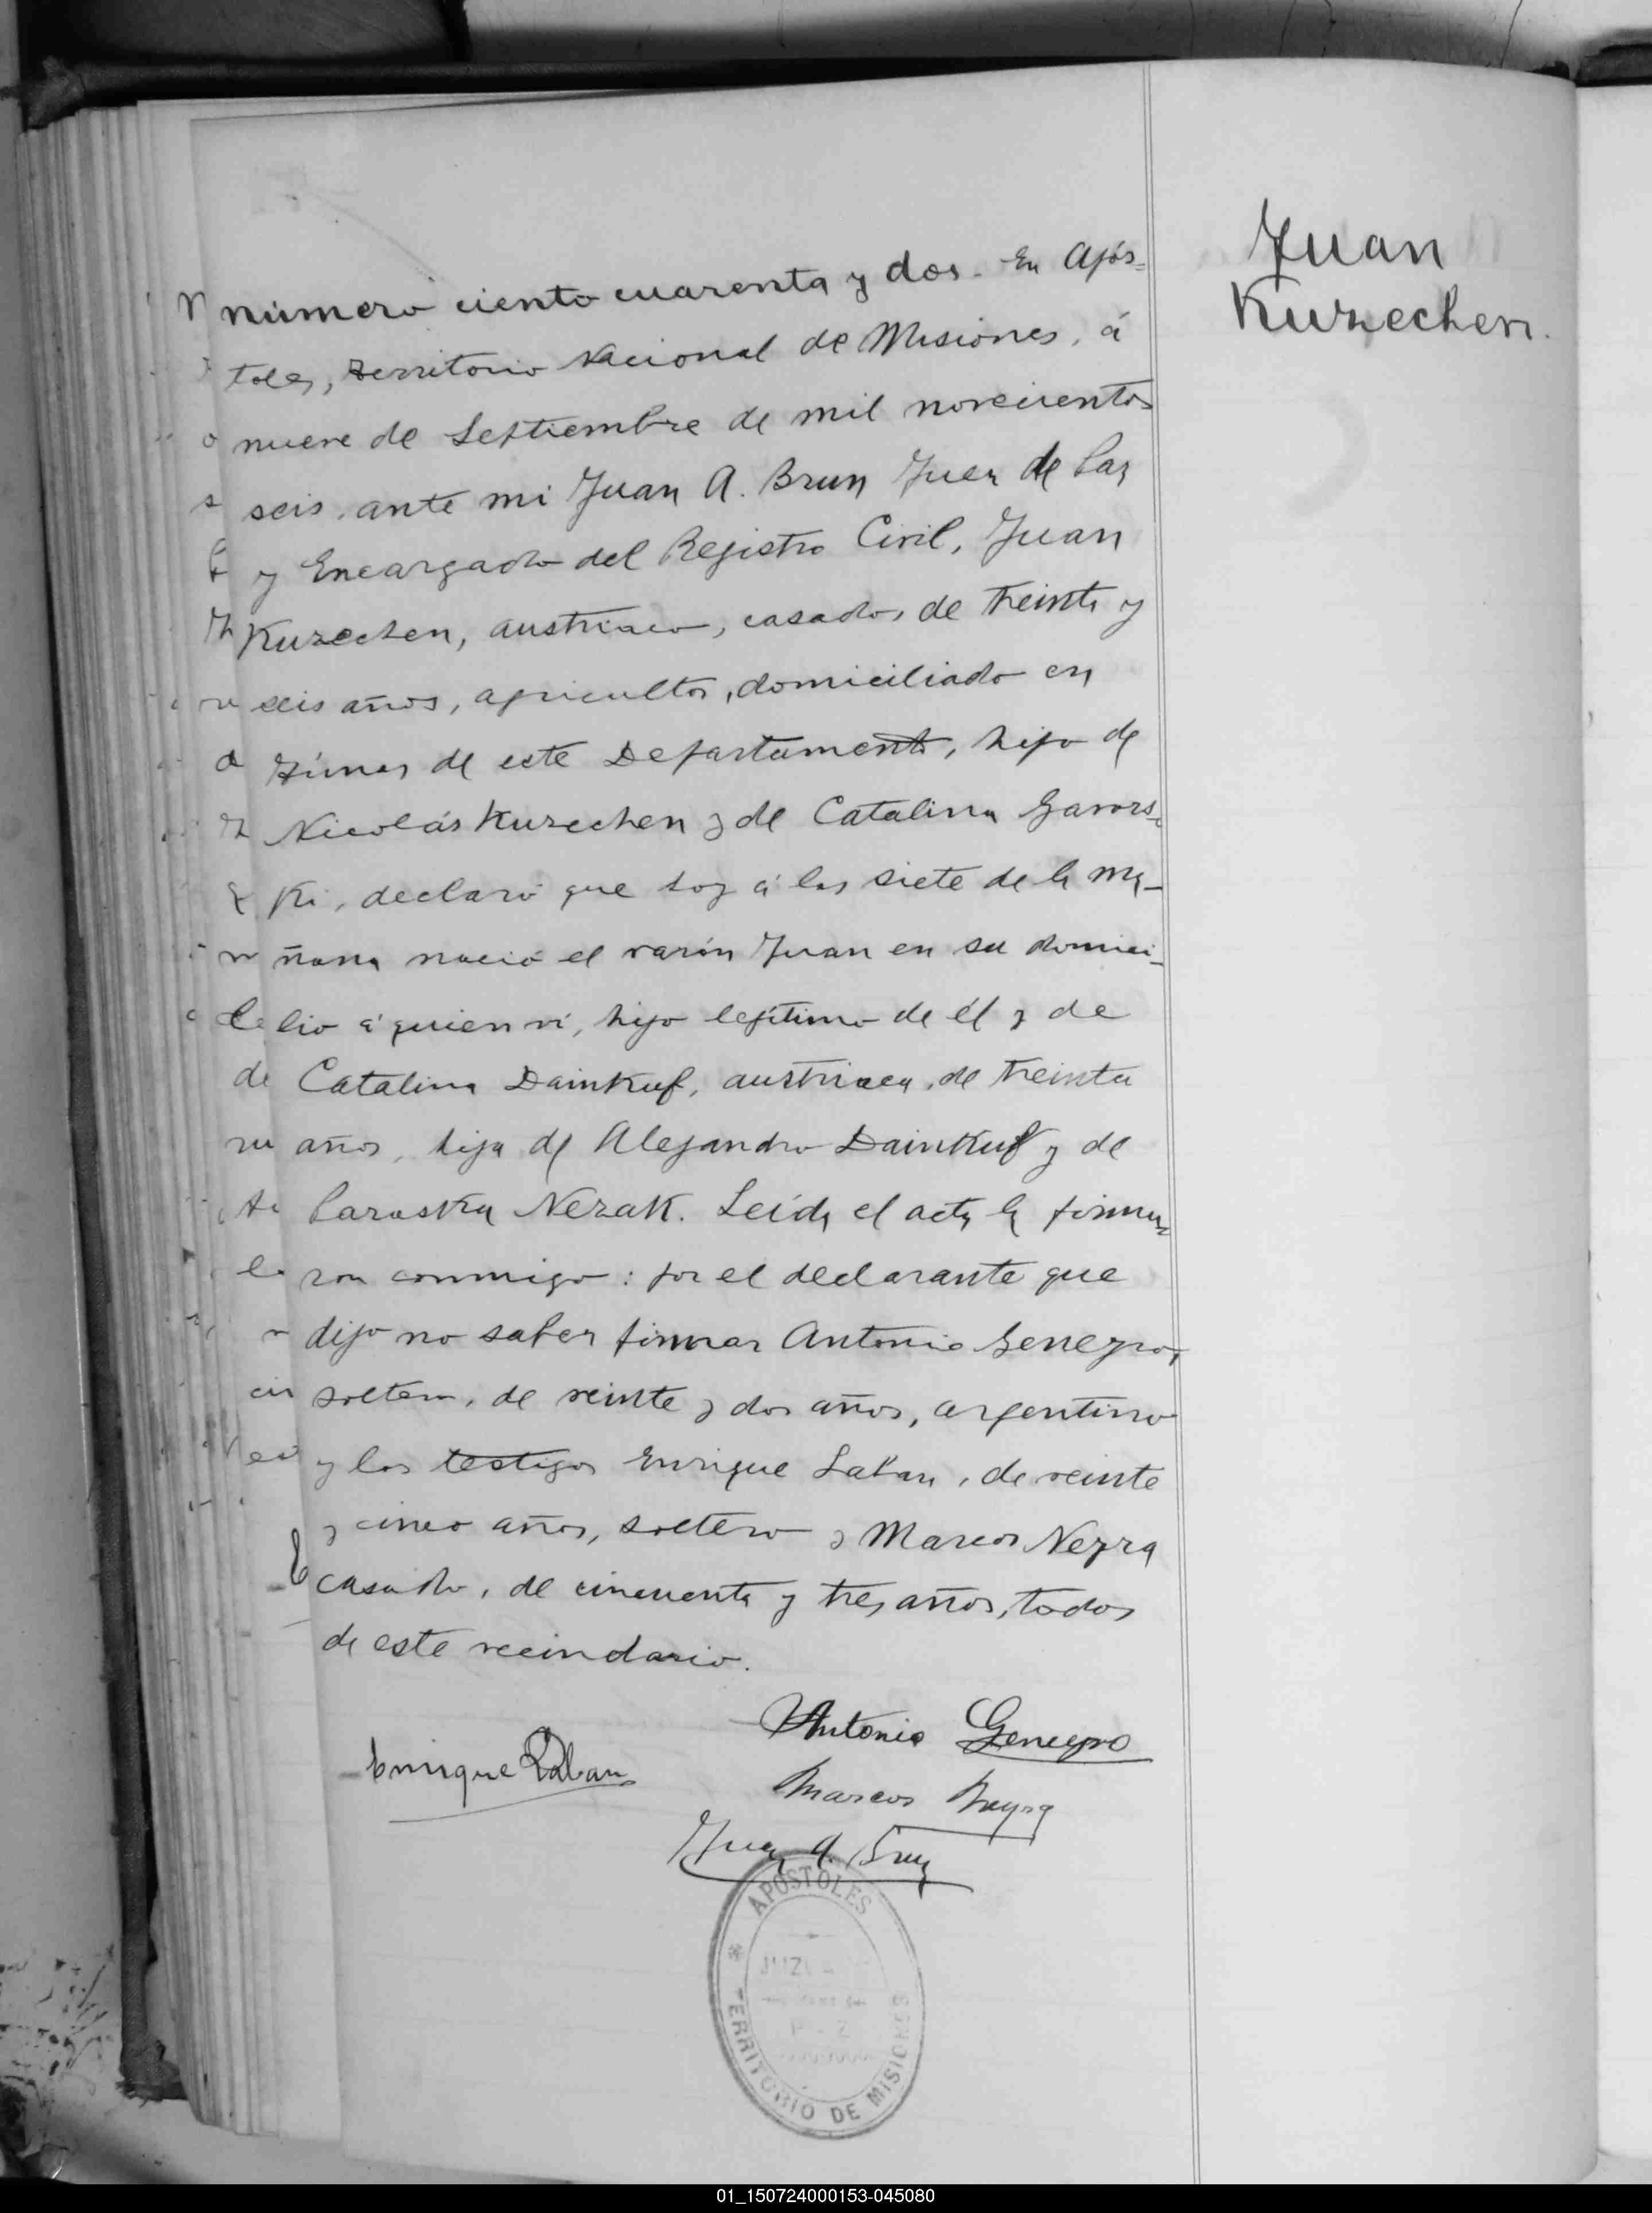 Juan
Kuzechen.
número ciento cuarenta y dos. En Após=
toles, Territorio Nacional de Misiones, á
nueve de Septiembre de mil novecientos
seis, ante mi Juan A. Brun Juez de Paz
y Encargado del Registro Civil, Juan
Kuzechen, austriaco, casado, de treinta y
seis años, agricultor, domiciliado en
de este Departamento, hijo de
Nicolás Kuzechen y de Catalina Gavors-
Ki, declaró que hoy á las siete de la ma-
ñana nació el varón Juan en su domici-
lio á quien ví, hijo legítimo de él y de
Catalina Dainkuf, austriaca, de treinta
años, hija de Alejandro Dainkuf y de
Paraska Nezak. Leida el acta la firma-
ron conmigo: por el declarante que
dijo no saber firmar Antonio Genegro,
soltero, de veinte y dos años, argentino
y los testigos Enrique Laban, de veinte
y cinco años, soltero y Marcos Neyra
casado, de cincuenta y tres años, todos
de este vecindario.
Antonio Genegro
Enrique Laban
Marcos Neyra
Juan A. Brun
APOSTOLES
TERRITORIO DE MISIONES
01_150724000153-045080